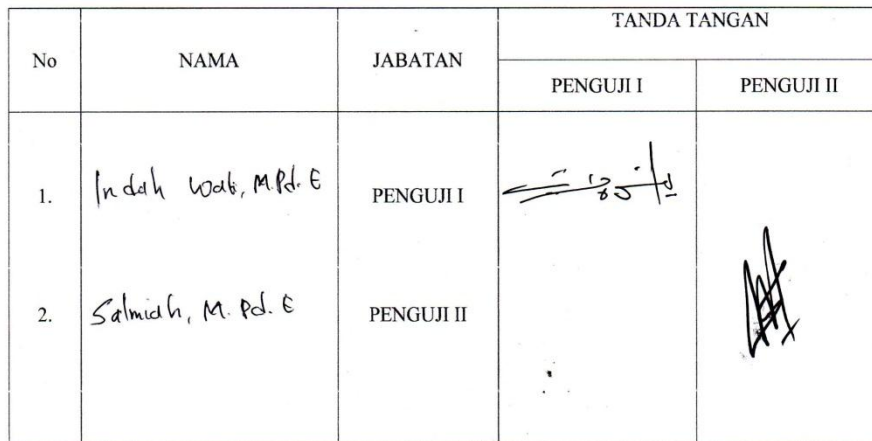 No NAMA JABATAN TANDA TANGAN
PENGUJI I PENGUJI II
1. Indah Wati, M.Pd.E PENGUJI I
2. Salmiah, M.Pd.E PENGUJI II